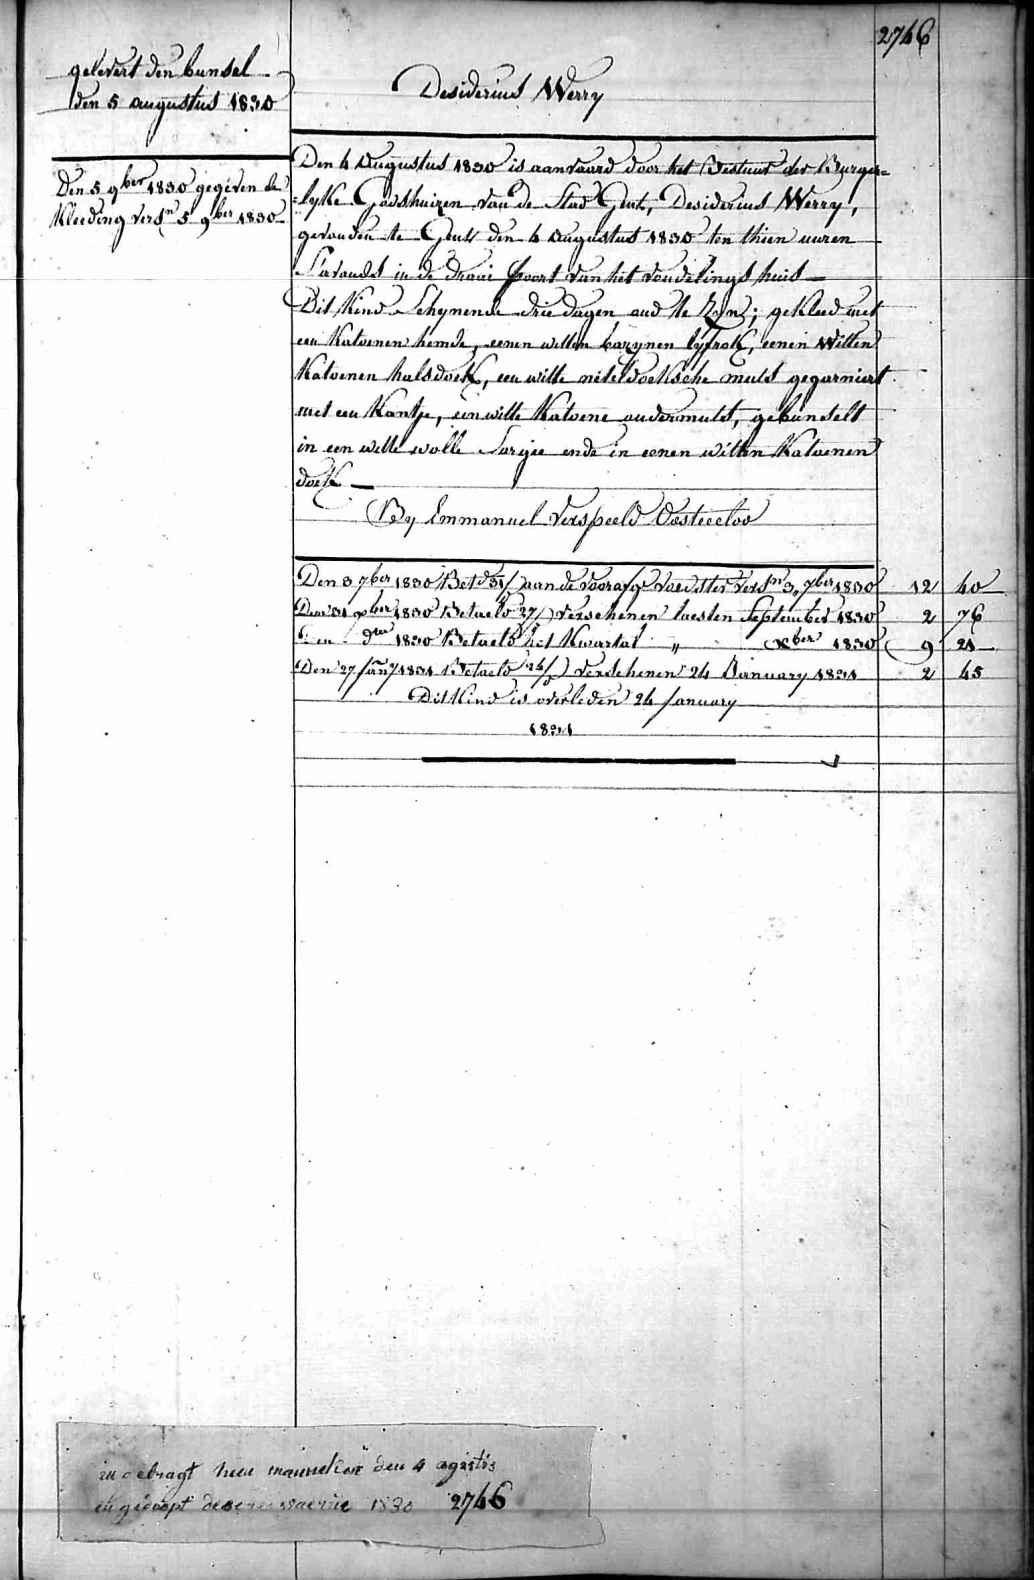 2746
gelevert den bunsel
den 5 augustus 1830
Desiderius Werry
Den 5 9ber 1830 gegeven de
Kleeding versn 5 9ber 1830
Den 4 Augustus 1830 is aanvaard door het Bestuur der Burger=
=lyke Godshuizen van de Stad Gent, Desiderius Werry,
gevonden te Gent den 4 augustus 1830 ten thien uuren
S'avonds in de draai poort van het vondelings huis —
Dit Kind Schynende drie dagen oud te Zyn; gekleed met
een Katoenen hemde, eenen witten bazynen lyfrok, eenen Witten
Katoenen halsdoek, een witte neteldoeksche muts gegarniert
met een Kantje, een witte Katoene ondermuts, gebunselt
in een witte wolle Sargie ende in eenen witten Katoenen
doek —
By Emmanuel Verspeeld Oosteecloo
Den 3 7ber 1830 Betd 31/ aan de voorafge voedster versn 3 7ber 1830 12 40
Den 31 xber 1830 Betaeld 27/ verschenen laesten September 1830 2 76
den 1830 Betaeld het Kwartal " xber 1830 9 21
Den 27 Jany 1831 Betaeld 24/ verschenen 24 January 1831 2 45
Dit Kind is overleden 24 January
1831
in gebragt den 4
1830 2746